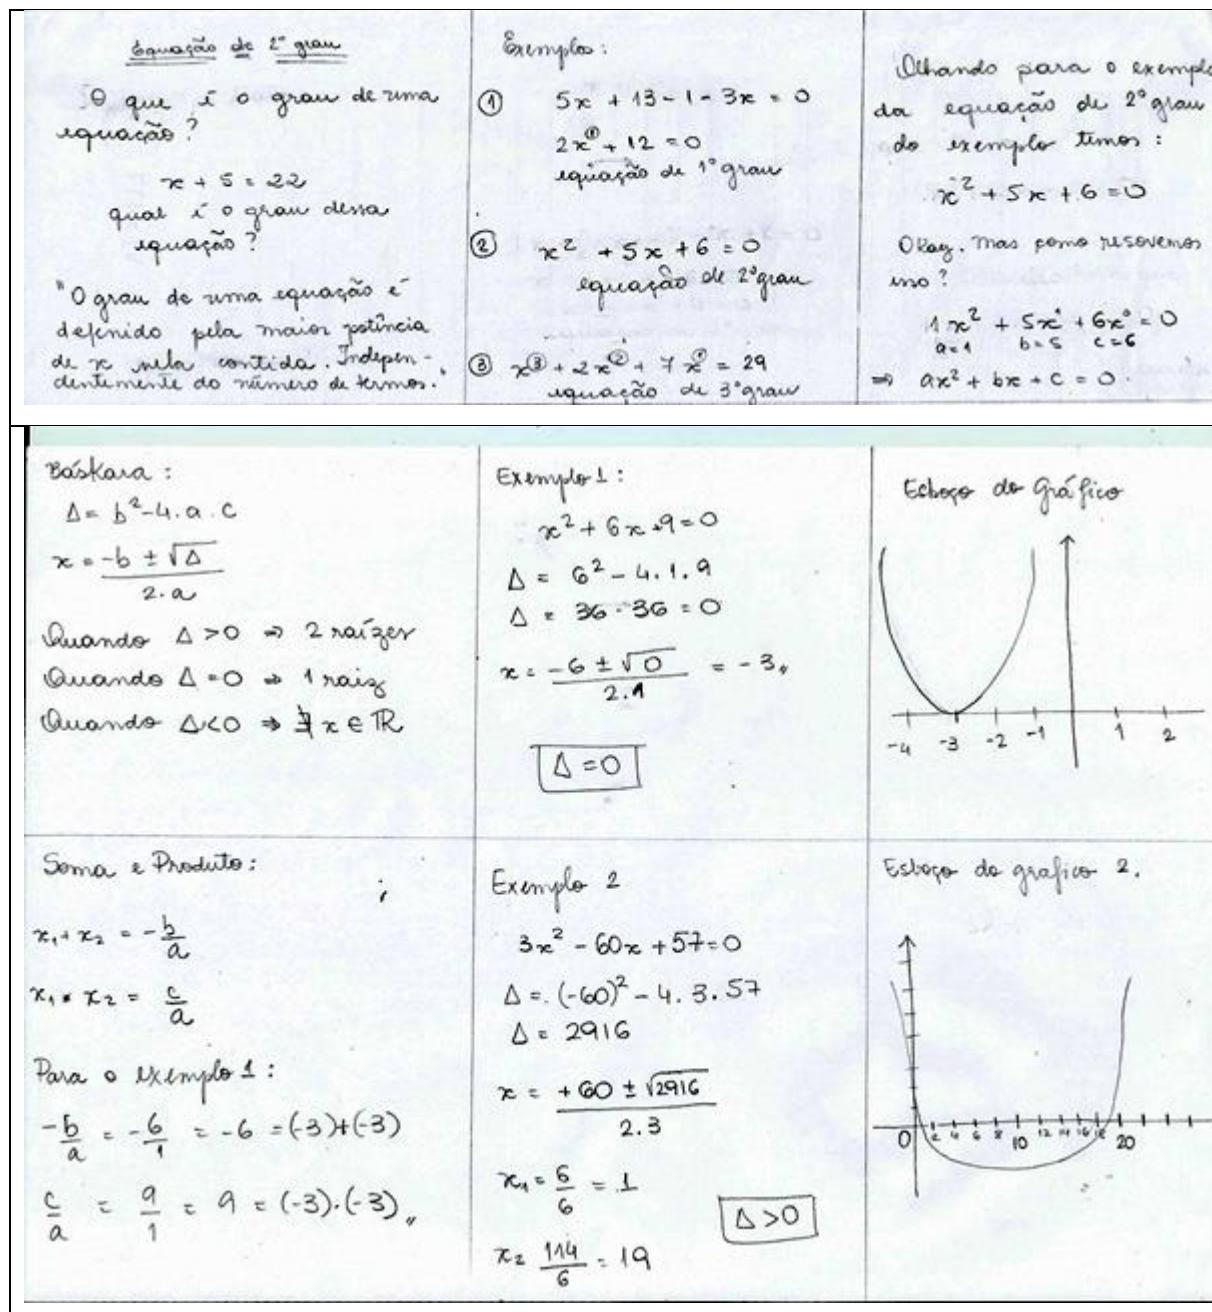 Equação de 2º grau
O que é o grau de uma
equação?
x + 5 = 22
qual é o grau dessa
equação?
"O grau de uma equação é
definido pela maior potência
de x nela contida. Indepen-
dentemente do número de termos."
Exemplos:
① 5x + 13 - 1 - 3x = 0
2x^① + 12 = 0
equação de 1º grau
② x² + 5x + 6 = 0
equação de 2º grau
③ x^③ + 2x^② + 7x^① = 29
equação de 3º grau
Olhando para o exemplo
da equação de 2º grau
do exemplo temos:
x² + 5x + 6 = 0
Okay. Mas como resovemos
isso?
1x² + 5x¹ + 6x⁰ = 0
a=1 b=5 c=6
⇒ ax² + bx + c = 0.
Báskara:
Δ = b² - 4.a.c
x = (-b ± √Δ) / 2.a
Quando Δ > 0 ⇒ 2 raízes
Quando Δ = 0 ⇒ 1 raiz
Quando Δ < 0 ⇒ ∄ x ∈ ℝ
Exemplo 1:
x² + 6x + 9 = 0
Δ = 6² - 4.1.9
Δ = 36 - 36 = 0
x = (-6 ± √0) / 2.1 = -3 "
Δ = 0
Esboço do Gráfico
-4 -3 -2 -1 1 2
Soma e Produto:
x₁ + x₂ = -b/a
x₁ • x₂ = c/a
Para o exemplo 1:
-b/a = -6/1 = -6 = (-3)+(-3)
c/a = 9/1 = 9 = (-3).(-3) "
Exemplo 2
3x² - 60x + 57 = 0
Δ = (-60)² - 4.3.57
Δ = 2916
x = (+60 ± √2916) / 2.3
x₁ = 6/6 = 1
Δ > 0
x₂ 114/6 = 19
Esboço do grafico 2.
0 2 4 6 8 10 12 14 16 18 20